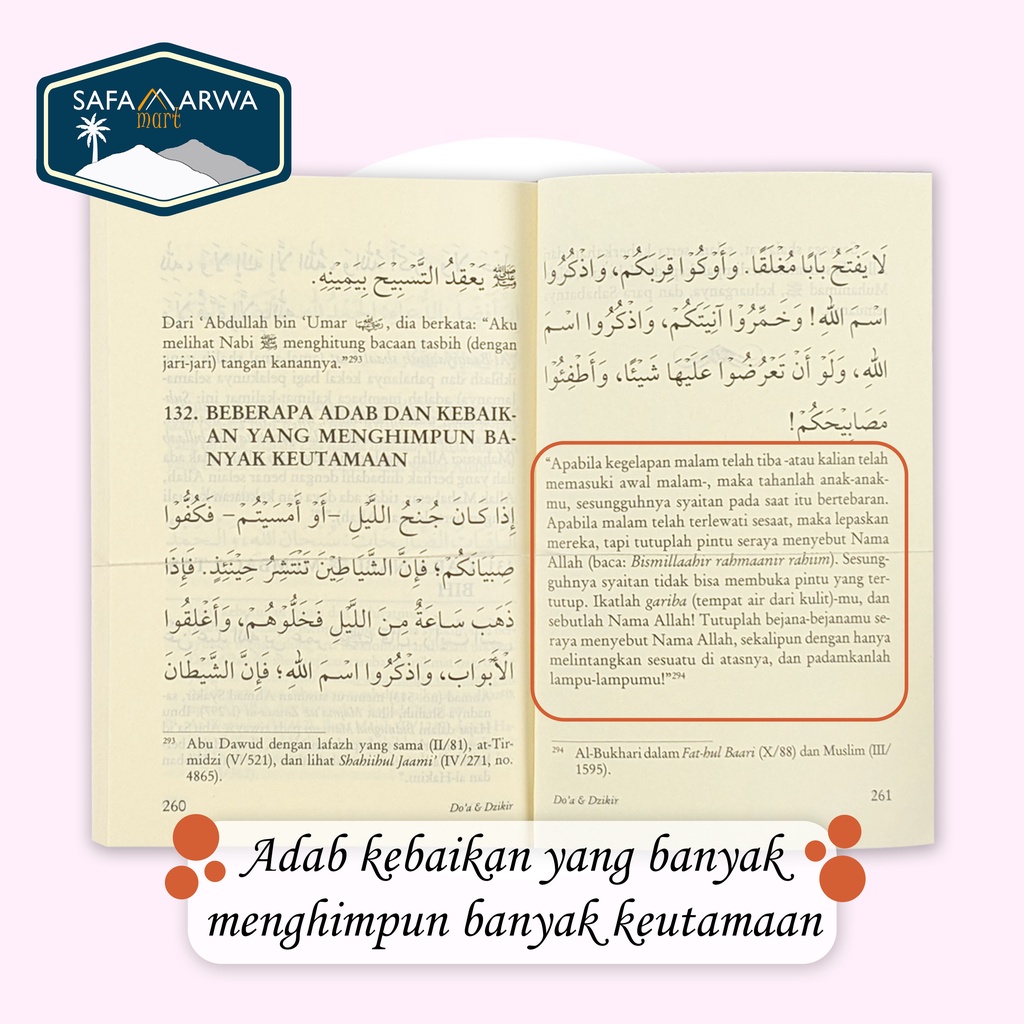 SAFAMARWA
mart
ﷺ يَعْقِدُ التَّسْبِيْحَ بِيَمِيْنِهِ.
Dari ‘Abdullah bin ‘Umar, dia berkata: “Aku
melihat Nabi ﷺ menghitung bacaan tasbih (dengan
jari-jari) tangan kanannya.”293
132. BEBERAPA ADAB DAN KEBAIK-
AN YANG MENGHIMPUN BA-
NYAK KEUTAMAAN
إِذَا كَانَ جُنْحُ اللَّيْلِ –أَوْ أَمْسَيْتُمْ– فَكُفُّوْا
صِبْيَانَكُمْ؛ فَإِنَّ الشَّيَاطِيْنَ تَنْتَشِرُ حِيْنَئِذٍ. فَإِذَا
ذَهَبَ سَاعَةٌ مِنَ اللَّيْلِ فَخَلُّوْهُمْ، وَأَغْلِقُوا
الْأَبْوَابَ، وَاذْكُرُوا اسْمَ اللهِ؛ فَإِنَّ الشَّيْطَانَ
293 Abu Dawud dengan lafazh yang sama (II/81), at-Tir-
midzi (V/521), dan lihat Shahiihul Jaami’ (IV/271, no.
4865).
260 Do’a & Dzikir
لَا يَفْتَحُ بَابًا مُغْلَقًا. وَأَوْكُوْا قِرَبَكُمْ، وَاذْكُرُوا
اسْمَ اللهِ! وَخَمِّرُوْا آنِيَتَكُمْ، وَاذْكُرُوا اسْمَ
اللهِ، وَلَوْ أَنْ تَعْرُضُوْا عَلَيْهَا شَيْئًا، وَأَطْفِئُوْا
مَصَابِيْحَكُمْ!
“Apabila kegelapan malam telah tiba -atau kalian telah
memasuki awal malam-, maka tahanlah anak-anak-
mu, sesungguhnya syaitan pada saat itu bertebaran.
Apabila malam telah terlewati sesaat, maka lepaskan
mereka, tapi tutuplah pintu seraya menyebut Nama
Allah (baca: Bismillaahir rahmaanir rahiim). Sesung-
guhnya syaitan tidak bisa membuka pintu yang ter-
tutup. Ikatlah gariba (tempat air dari kulit)-mu, dan
sebutlah Nama Allah! Tutuplah bejana-bejanamu se-
raya menyebut Nama Allah, sekalipun dengan hanya
melintangkan sesuatu di atasnya, dan padamkanlah
lampu-lampumu!”294
294 Al-Bukhari dalam Fat-hul Baari (X/88) dan Muslim (III/
1595).
Do’a & Dzikir 261
Adab kebaikan yang banyak
menghimpun banyak keutamaan